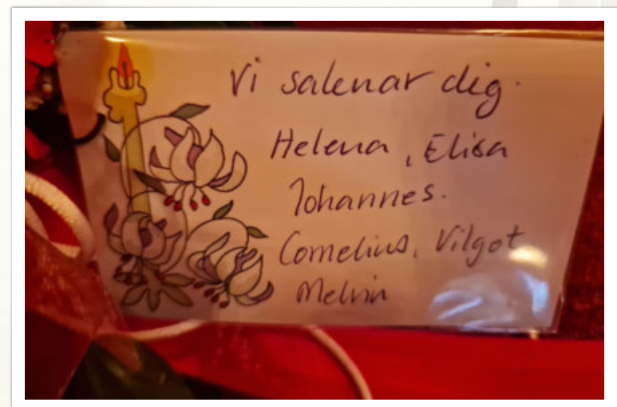 Vi saknar dig.
Helena, Elisa
Johannes.
Cornelius, Vilgot
Melvin